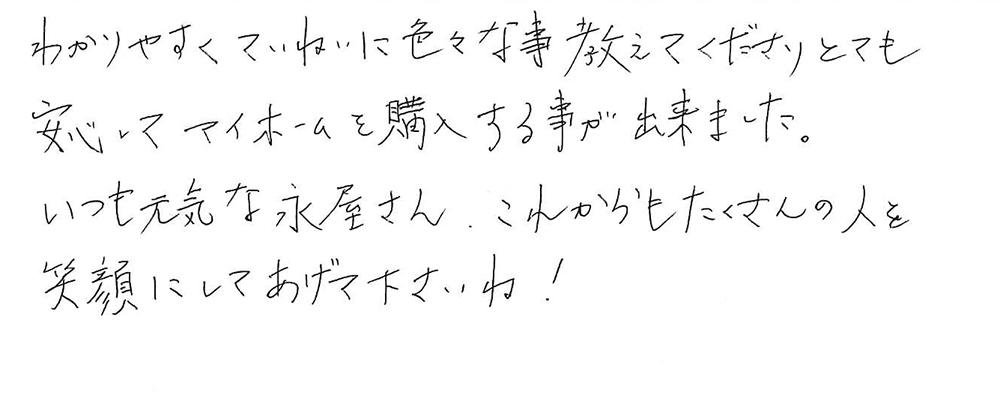 わかりやすくていねいに色々な事教えてくださりとても
安心してマイホームを購入する事が出来ました。
いつも元気な永屋さん、これからもたくさんの人を
笑顔にしてあげて下さいね！